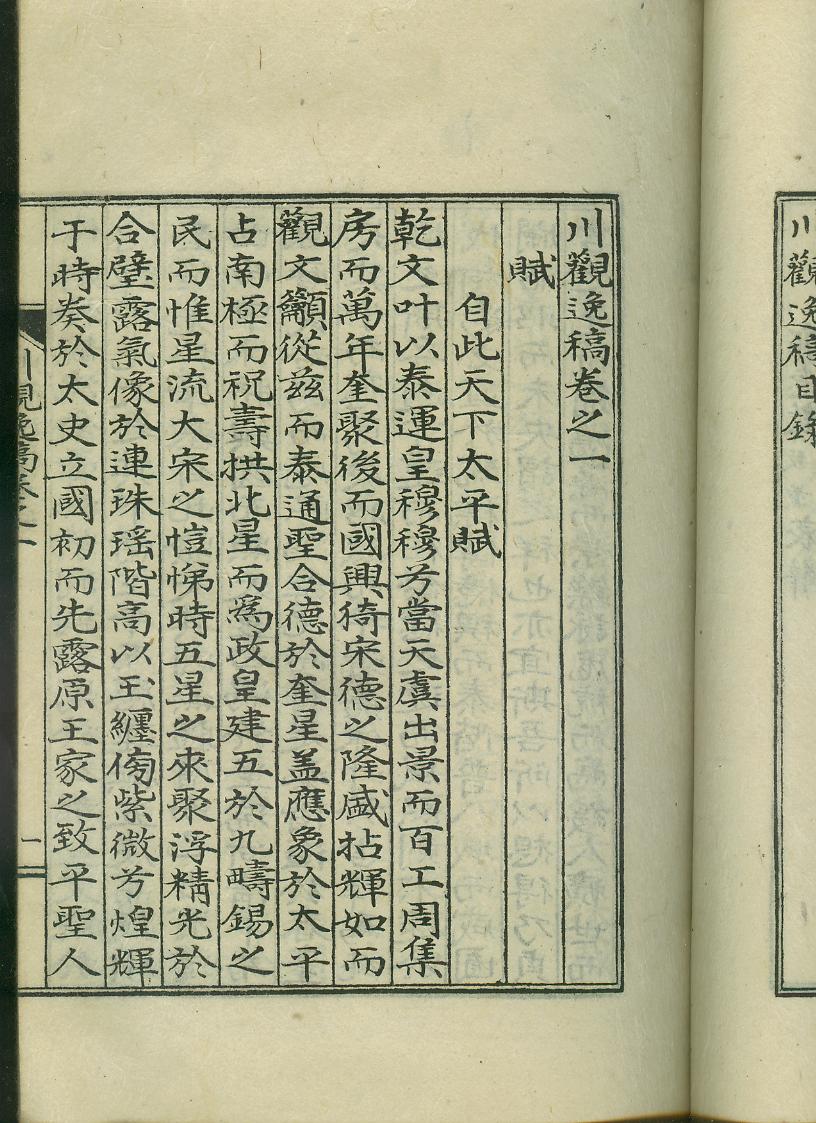 川觀逸稿目錄
川觀逸稿卷之一
賦
自此天下太平賦
乾文叶以泰運皇穆穆芳當天虞出景而百工周集
房而萬年奎聚後而國興猗宋德之隆盛拈輝如而
觀文籲從玆而泰通聖合德於奎星盖應象於太平
占南極而祝壽拱北星而爲政皇建五於九疇錫之
民而惟星流大宋之愷悌時五星之來聚浮精光於
合璧露氣像於連珠瑤階高以玉纏傍紫微芳煌輝
于時奏於太史立國初而先露原王家之致平聖人
川觀逸稿卷之一
一